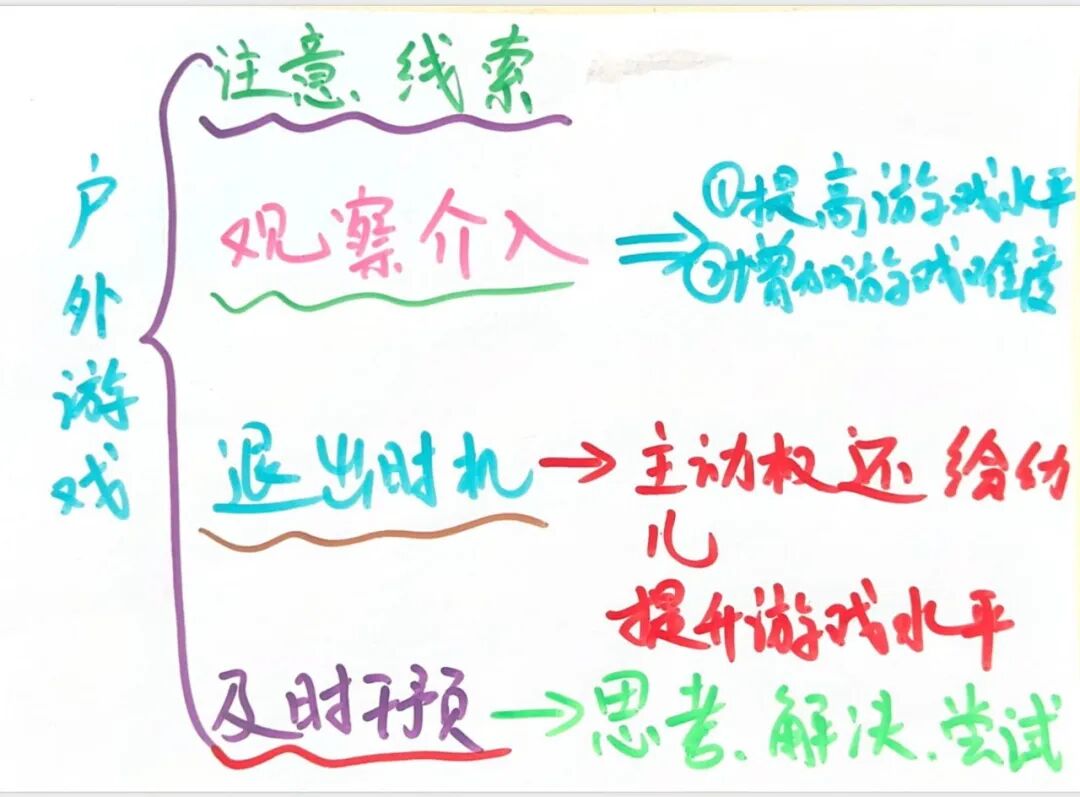 户外游戏
注意、线索
观察介入
①提高游戏水平
②增加游戏难度
退出时机→主动权还给幼
儿
提升游戏水平
及时干预→思考、解决、尝试